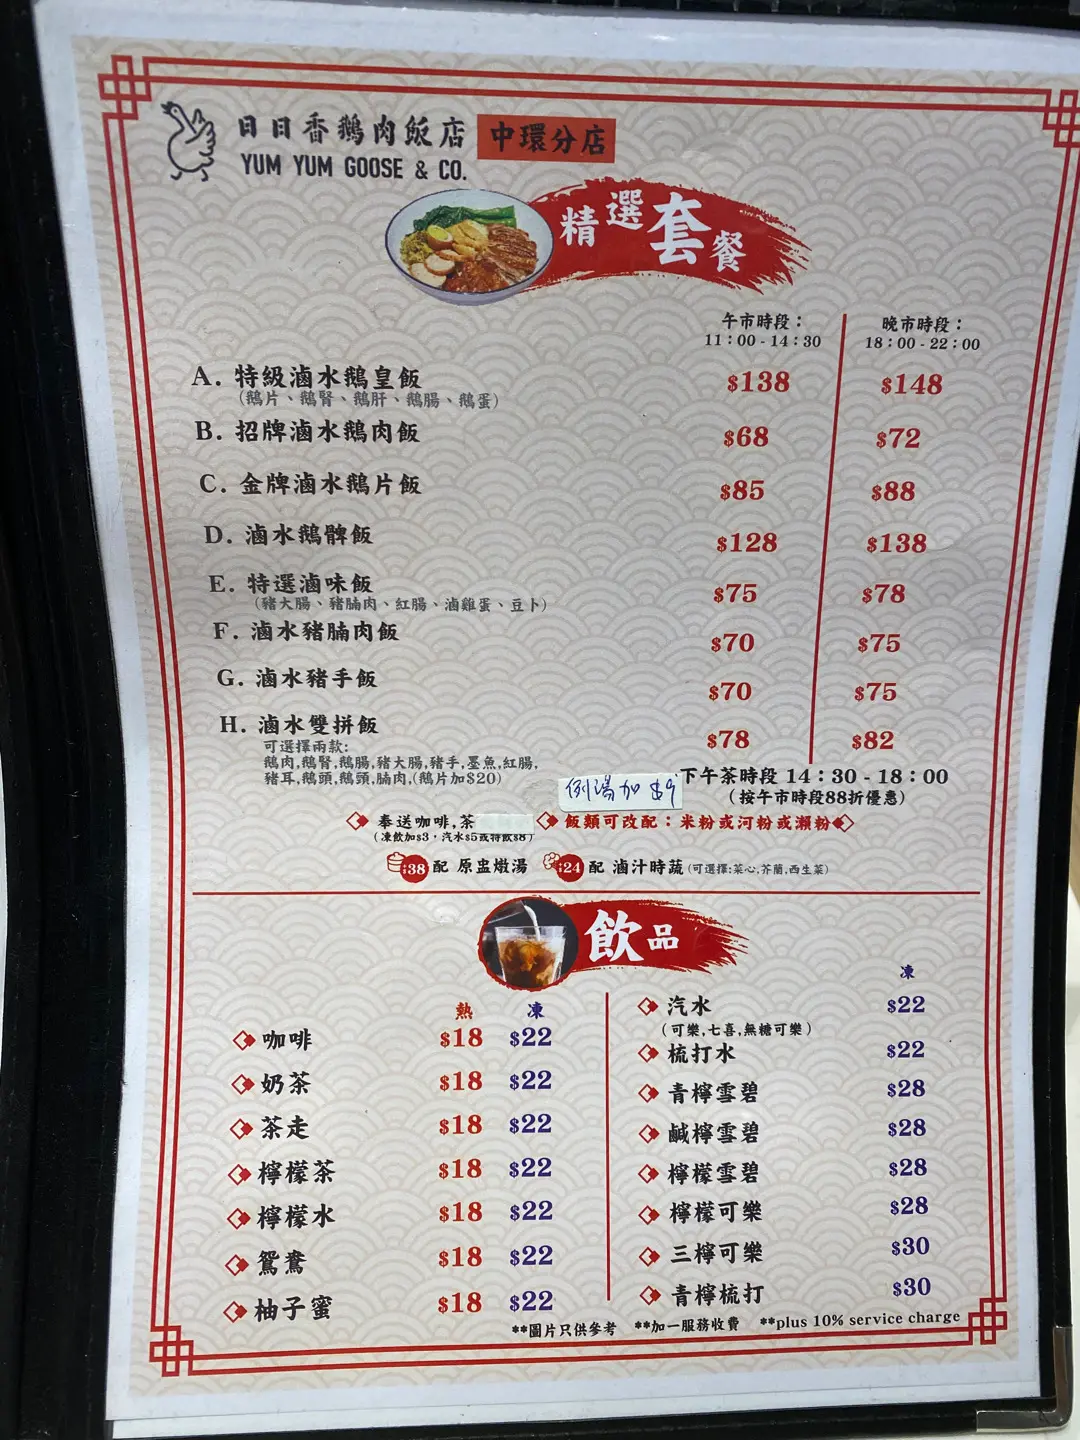 日日香鵝肉飯店 中環分店
YUM YUM GOOSE & CO.
精選套餐
午市時段： 晚市時段：
11：00 - 14：30 18：00 - 22：00
A. 特級滷水鵝皇飯 $138 $148
(鵝片、鵝腎、鵝肝、鵝腸、鵝蛋)
B. 招牌滷水鵝肉飯 $68 $72
C. 金牌滷水鵝片飯 $85 $88
D. 滷水鵝髀飯 $128 $138
E. 特選滷味飯 $75 $78
(豬大腸、豬腩肉、紅腸、滷雞蛋、豆卜)
F. 滷水豬腩肉飯 $70 $75
G. 滷水豬手飯 $70 $75
H. 滷水雙拼飯 $78 $82
可選擇兩款:
鵝肉,鵝腎,鵝腸,豬大腸,豬手,墨魚,紅腸,
豬耳,鵝頭,鵝頸,腩肉,(鵝片加$20)
例湯加 $9
下午茶時段 14：30 - 18：00
(按午市時段88折優惠)
奉送咖啡,茶
(凍飲加$3，汽水$5或特飲$8)
飯類可改配：米粉或河粉或瀨粉
$38 配 原盅燉湯 $24 配 滷汁時蔬 (可選擇:菜心,芥蘭,西生菜)
飲品
熱 凍
咖啡 $18 $22
奶茶 $18 $22
茶走 $18 $22
檸檬茶 $18 $22
檸檬水 $18 $22
鴛鴦 $18 $22
柚子蜜 $18 $22
凍
汽水 $22
(可樂,七喜,無糖可樂)
梳打水 $22
青檸雪碧 $28
鹹檸雪碧 $28
檸檬雪碧 $28
檸檬可樂 $28
三檸可樂 $30
青檸梳打 $30
**圖片只供參考 **加一服務收費 **plus 10% service charge